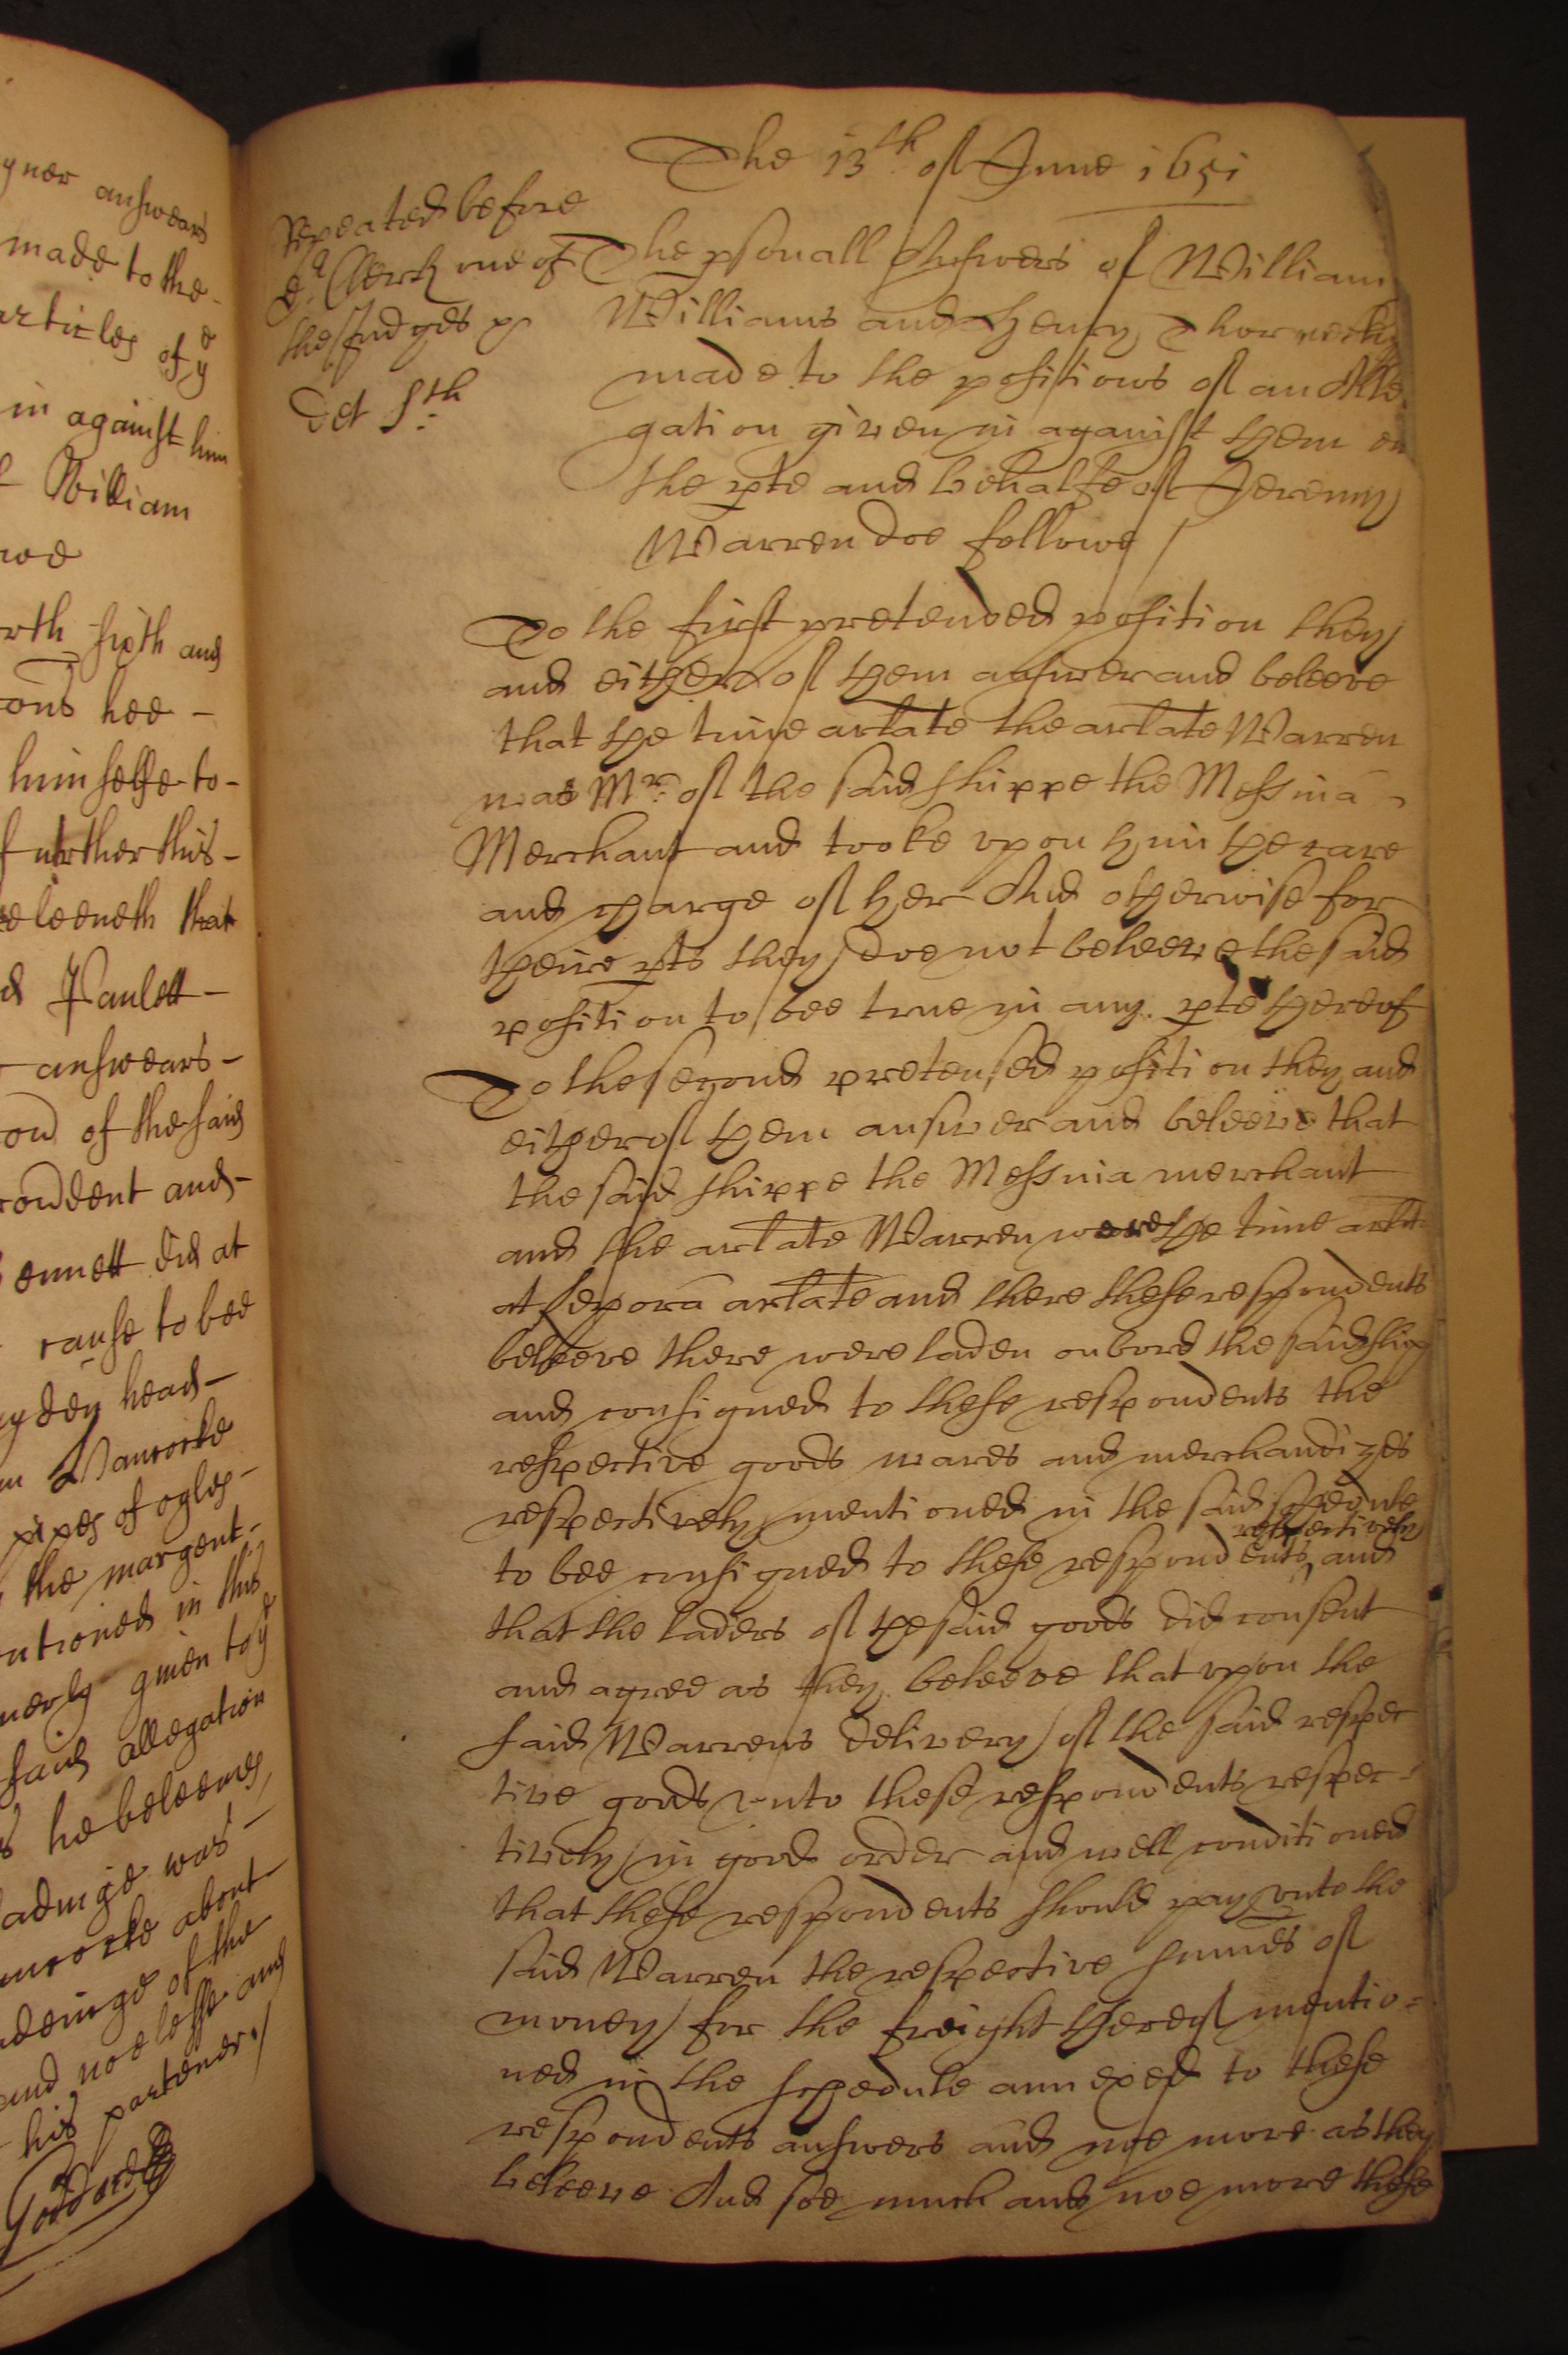 yner answears
made to the
articles of ye
in against him
William
rth sixth and
ons hee -
himselfe to-
further this-
beleeueth that
Paulett -
answears -
of the said
rondent and-
ennett did at
cause to bee
head-
pipes of
the margent-
ntioned in this
nerly giuen to ye
said allegation
he beleeues,
ladinge was -
about
of the
and noe lesse and
his partener./
Goddard
The 13th of June 1651
Repeated before
Dr Clerk one of
the Judges
Oct 8th
The psonall Answers of William
Williams and Henry
made to the positions of an Alle
gation given in against them on
the pte and behalfe of Jeremy
Warren doe followe /
To the first pretended position they
and either of them answer and beleeve
that the time arlate the arlate Warren
was Mr of the said shippe the Messina
Merchant and tooke vpon him the care
and charge of her And otherwise for
theire pts they doe not beleeve the said
position to bee true in any pte thereof
To the second pretensed position they and
either of them answer and beleeve that
the said shippe the Messina merchant
and the arlate Warren were the time arlate
at arlate and there these respondents
beleeve there were laden on bord the said ship
and consigned to these respondents the
respective goods wares and merchandizes
respectively mentioned in the said schedule
respectively
to bee consigned to these respondents and
that the laders of the said goods did consent
and agree as they beleeve that vpon the
said Warrens delivery of the said respec
tive goods vnto these respondents respec-
tively in good order and well conditioned
that these respondents should pay vnto the
said Warren the respective summes of
money for the freight thereof mentio=
ned in the schedule annexed to these
respondents answers and noe more as they
beleeve And soe much and noe more these